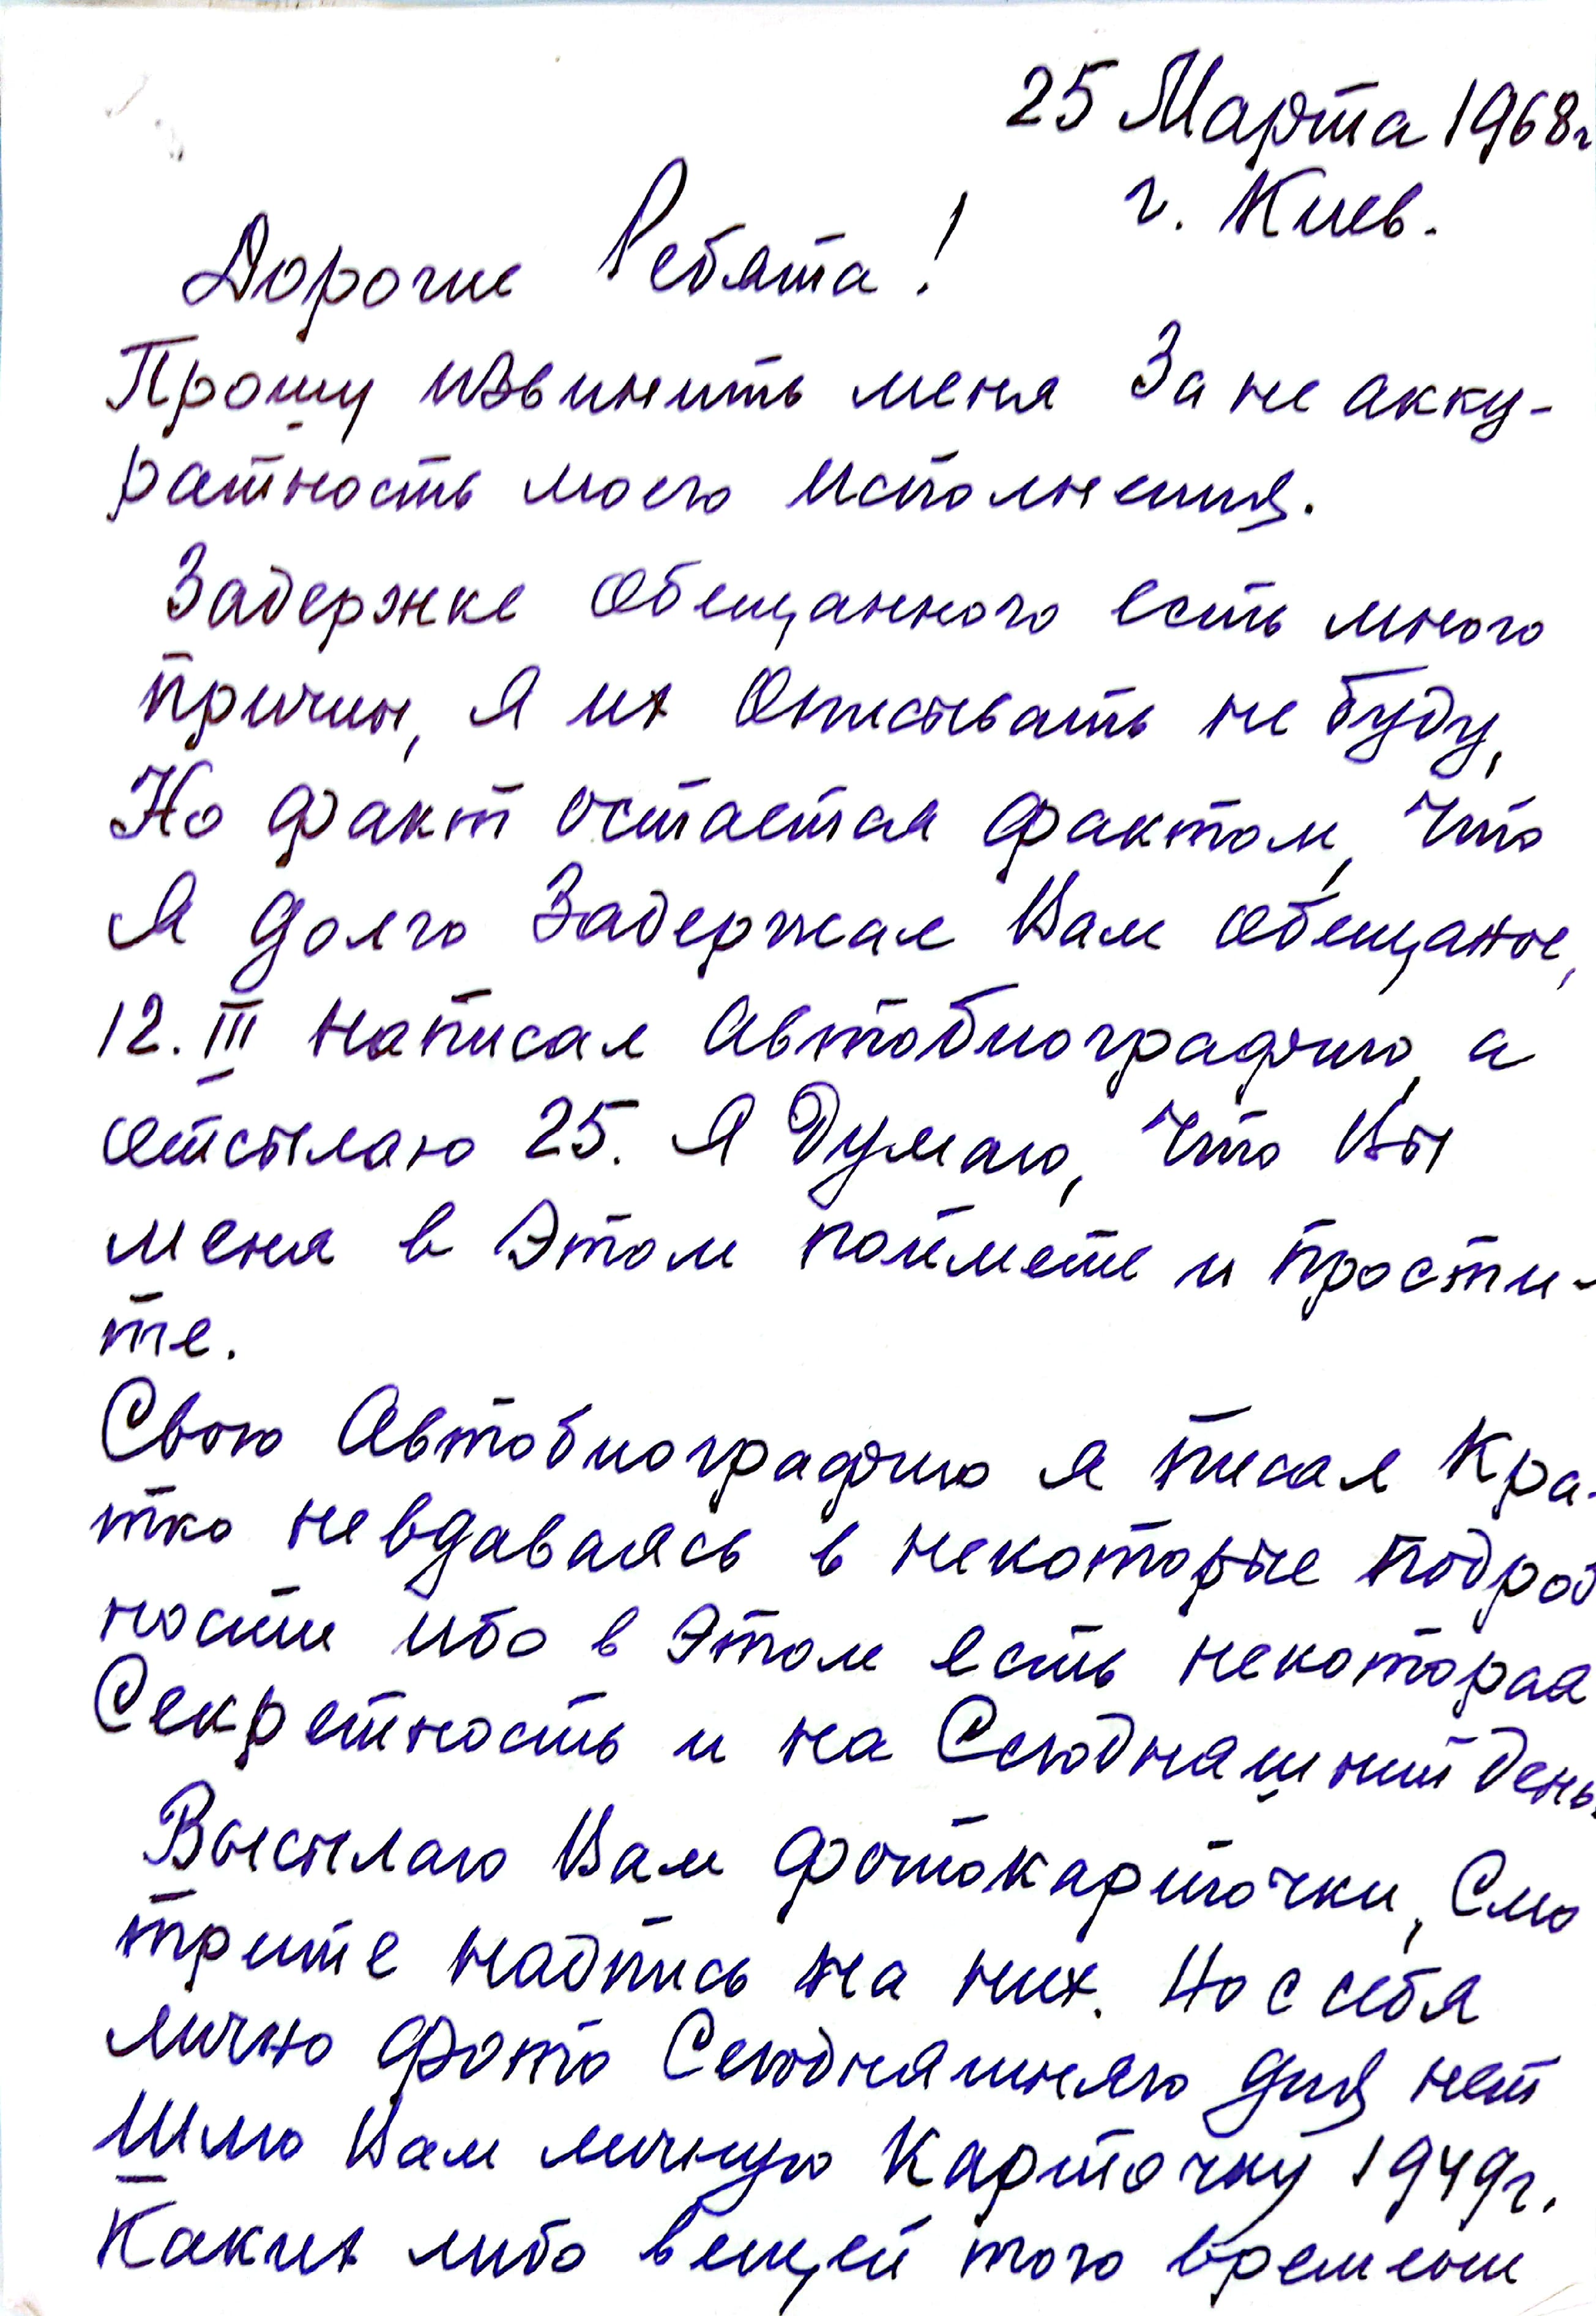 25 Марта 1968г
г. Киев.
Дорогие Ребята!
Прошу извинить меня За не акку-
ратность моего исполнения.
Задержке обещанного есть много
причин, Я их Описывать не буду,
Но факт остается фактом, что
Я долго Задержал Вам обещаное,
12. III написал Автобиографию, а
отсылаю 25. Я Думаю, что Вы
меня в Этом поймете и прости-
те.
Свою Автобиографию я писал Кра-
тко невдаваясь в некоторые подроб
ности ибо в Этом есть некоторая
Секретность и на Сегодняшний день.
Высылаю Вам фотокарточки, Смо
трите надпись на них. Но с себя
лично фото Сегодняшняго дня нет
Шлю Вам личную Карточку 1949г.
Каких либо вещей того времени